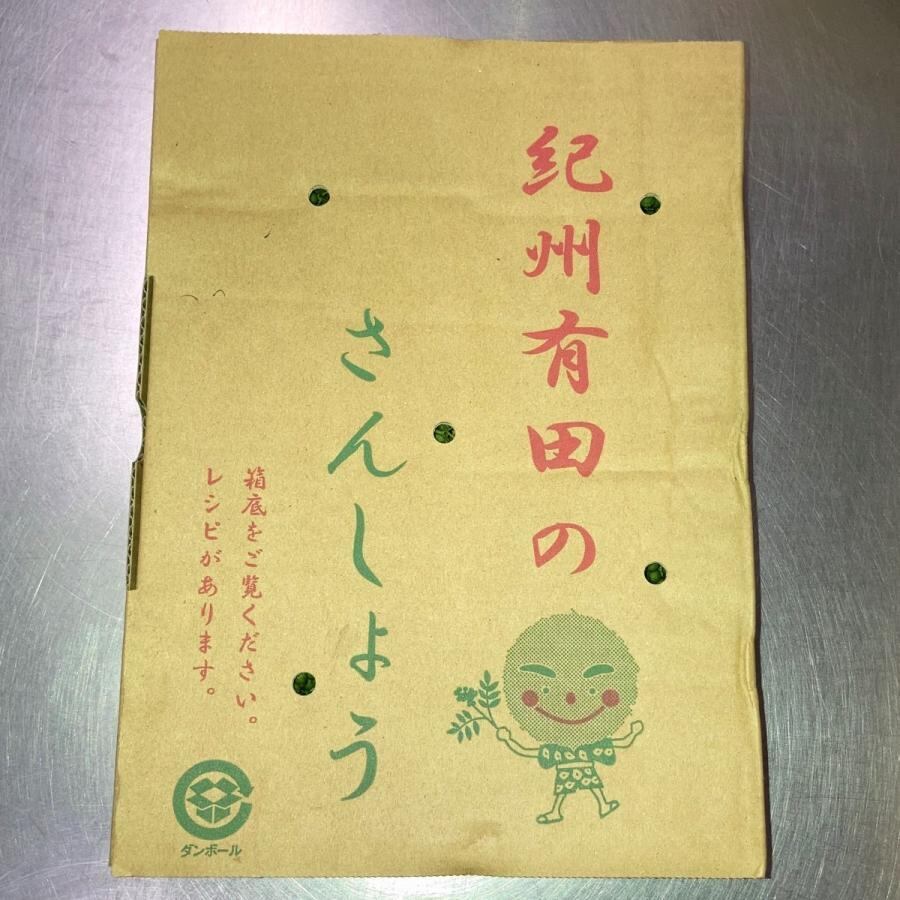 紀州有田の
さんしょう
箱底をご覧ください。
レシピがあります。
ダンボール